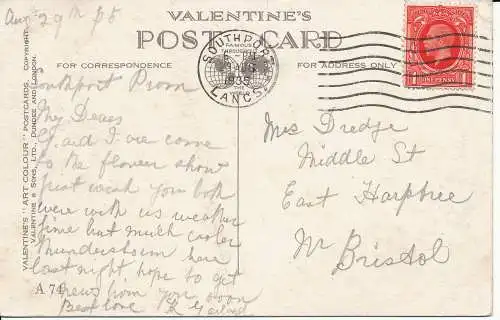 Aug 29th 35
VALENTINE'S
POST CARD
FOR CORRESPONDENCE
FOR ADDRESS ONLY
SOUTHPORT
FAMOUS
THROUGHOUT
1935
THE WORLD
LANCS
ONE PENNY
VALENTINE'S "ART COLOUR" POSTCARDS COPYRIGHT
VALENTINE & SONS, LTD., DUNDEE AND LONDON.
Southport Prom
My Dears
F. and I are come
to the flower show
just weak you both
were with us weather
fine but much cooler
thunderstorm here
last night hope to get
news from you soon
Best love
A 74
Mrs Dredge
Middle St
East Harptree
Nr Bristol